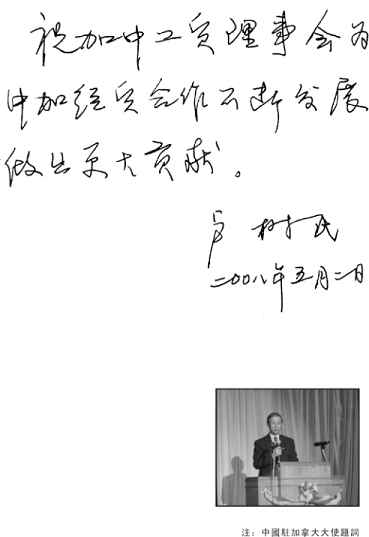 祝加中工贸理事会为
中加经贸合作不断发展
做出更大贡献。
卢树民
二〇〇八年五月二日
注：中國駐加拿大大使題詞